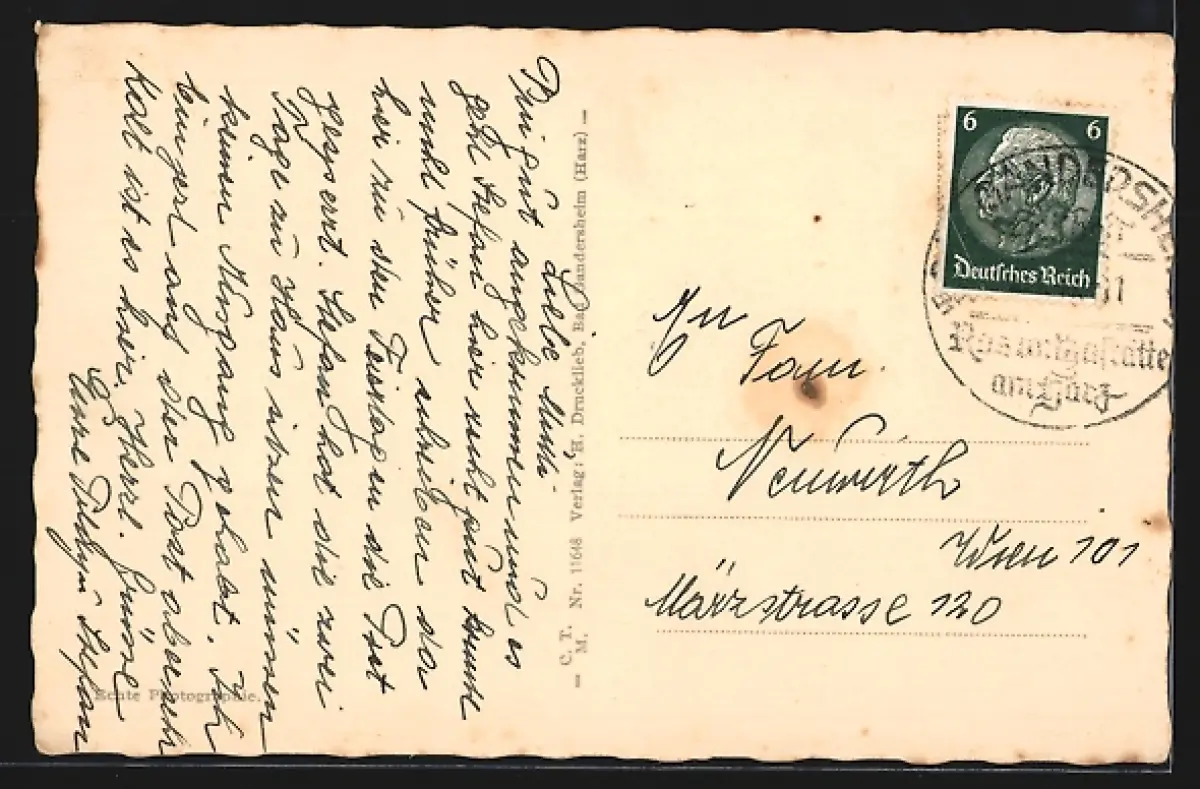 Liebe Mutti
Bin gut angekommen und es
geht Stefan hier recht gut konnte
nicht früher schreiben da
hier zu den Feiertagen die Post
gesperrt. Stefan hat die zwei
Tage zu Haus sitzen müssen
keinen Ausgang gehabt. Ich
auf der Post aber sehr
kalt ist es hier. Herzl. Grüsse
Eure Stefan
Echte Photographie.
— C. T. M. Nr. 11648 Verlag: H. Drucklieb, Bad Gandersheim (Harz) —
6 6
Deutsches Reich
GANDERSHEIM
am Harz
An
Fam.
Neuwirth
Wien 101
Märzstrasse 120